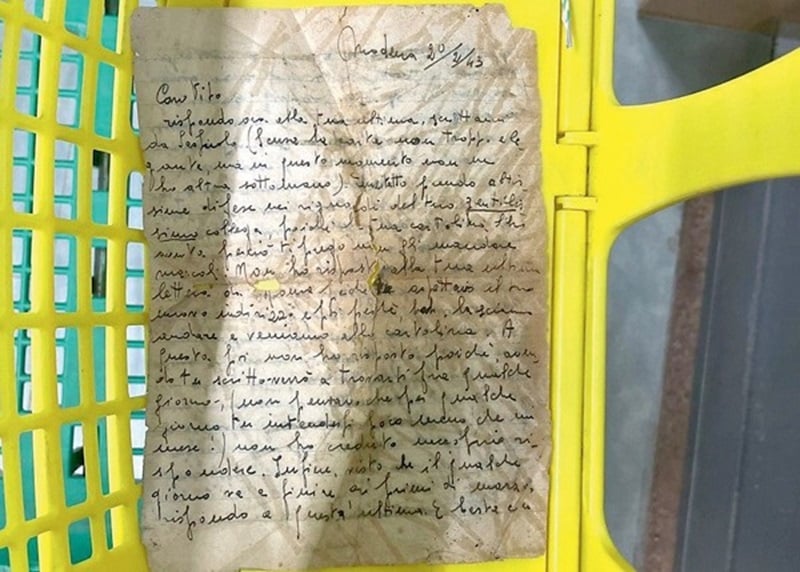 Modena 20/2/43
Caro Tito
rispondo ora alla tua ultima, scrittami
da Sassuolo (scusa la carta non tropp. ele
gante, ma in questo momento non ne
ho altra sottomano). Anzitutto prendo
difese nei riguardi del tuo gentilis
simo collega, poiché la tua cartolina l'ho
perciò ti prego non gli mandare
Non ho risposto alla tua ultima
lettera da perché aspettavo il tuo
nuovo indirizzo e poi perché, bah, lasciamo
andare e veniamo alla cartolina. A
questa poi non ho risposto poiché, aven
do tu scritto verrò a trovarti fra qualche
giorno, (non pensavo che per qualche
giorno tu intendessi poco meno che un
mese!) non ho creduto necessario ri-
spondere. Infine, visto che il qualche
giorno va a finire ai primi di marzo,
rispondo a questa ultima. E basta